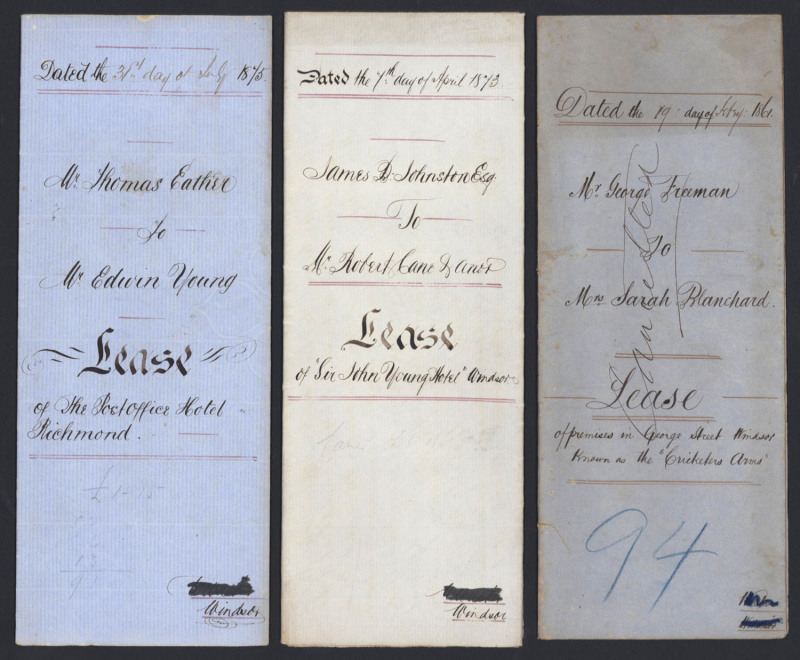 Dated the 31st day of July 1875
Mr. Thomas Eather
To
Mr. Edwin Young
Lease
of The Post Office Hotel
Richmond.
£1-15
Windsor
Dated the 7th day of April 1873
James D Johnston Esq.
To
Mr. Robert Cane & anor
Lease
of "Sir John Young Hotel" Windsor
Windsor
Dated the 19 day of Feby. 1861
Mr. George Freeman
To
Mrs Sarah Blanchard.
Lease
of premises in George Street Windsor
Known as the "Cricketers Arms"
Cancelled
94